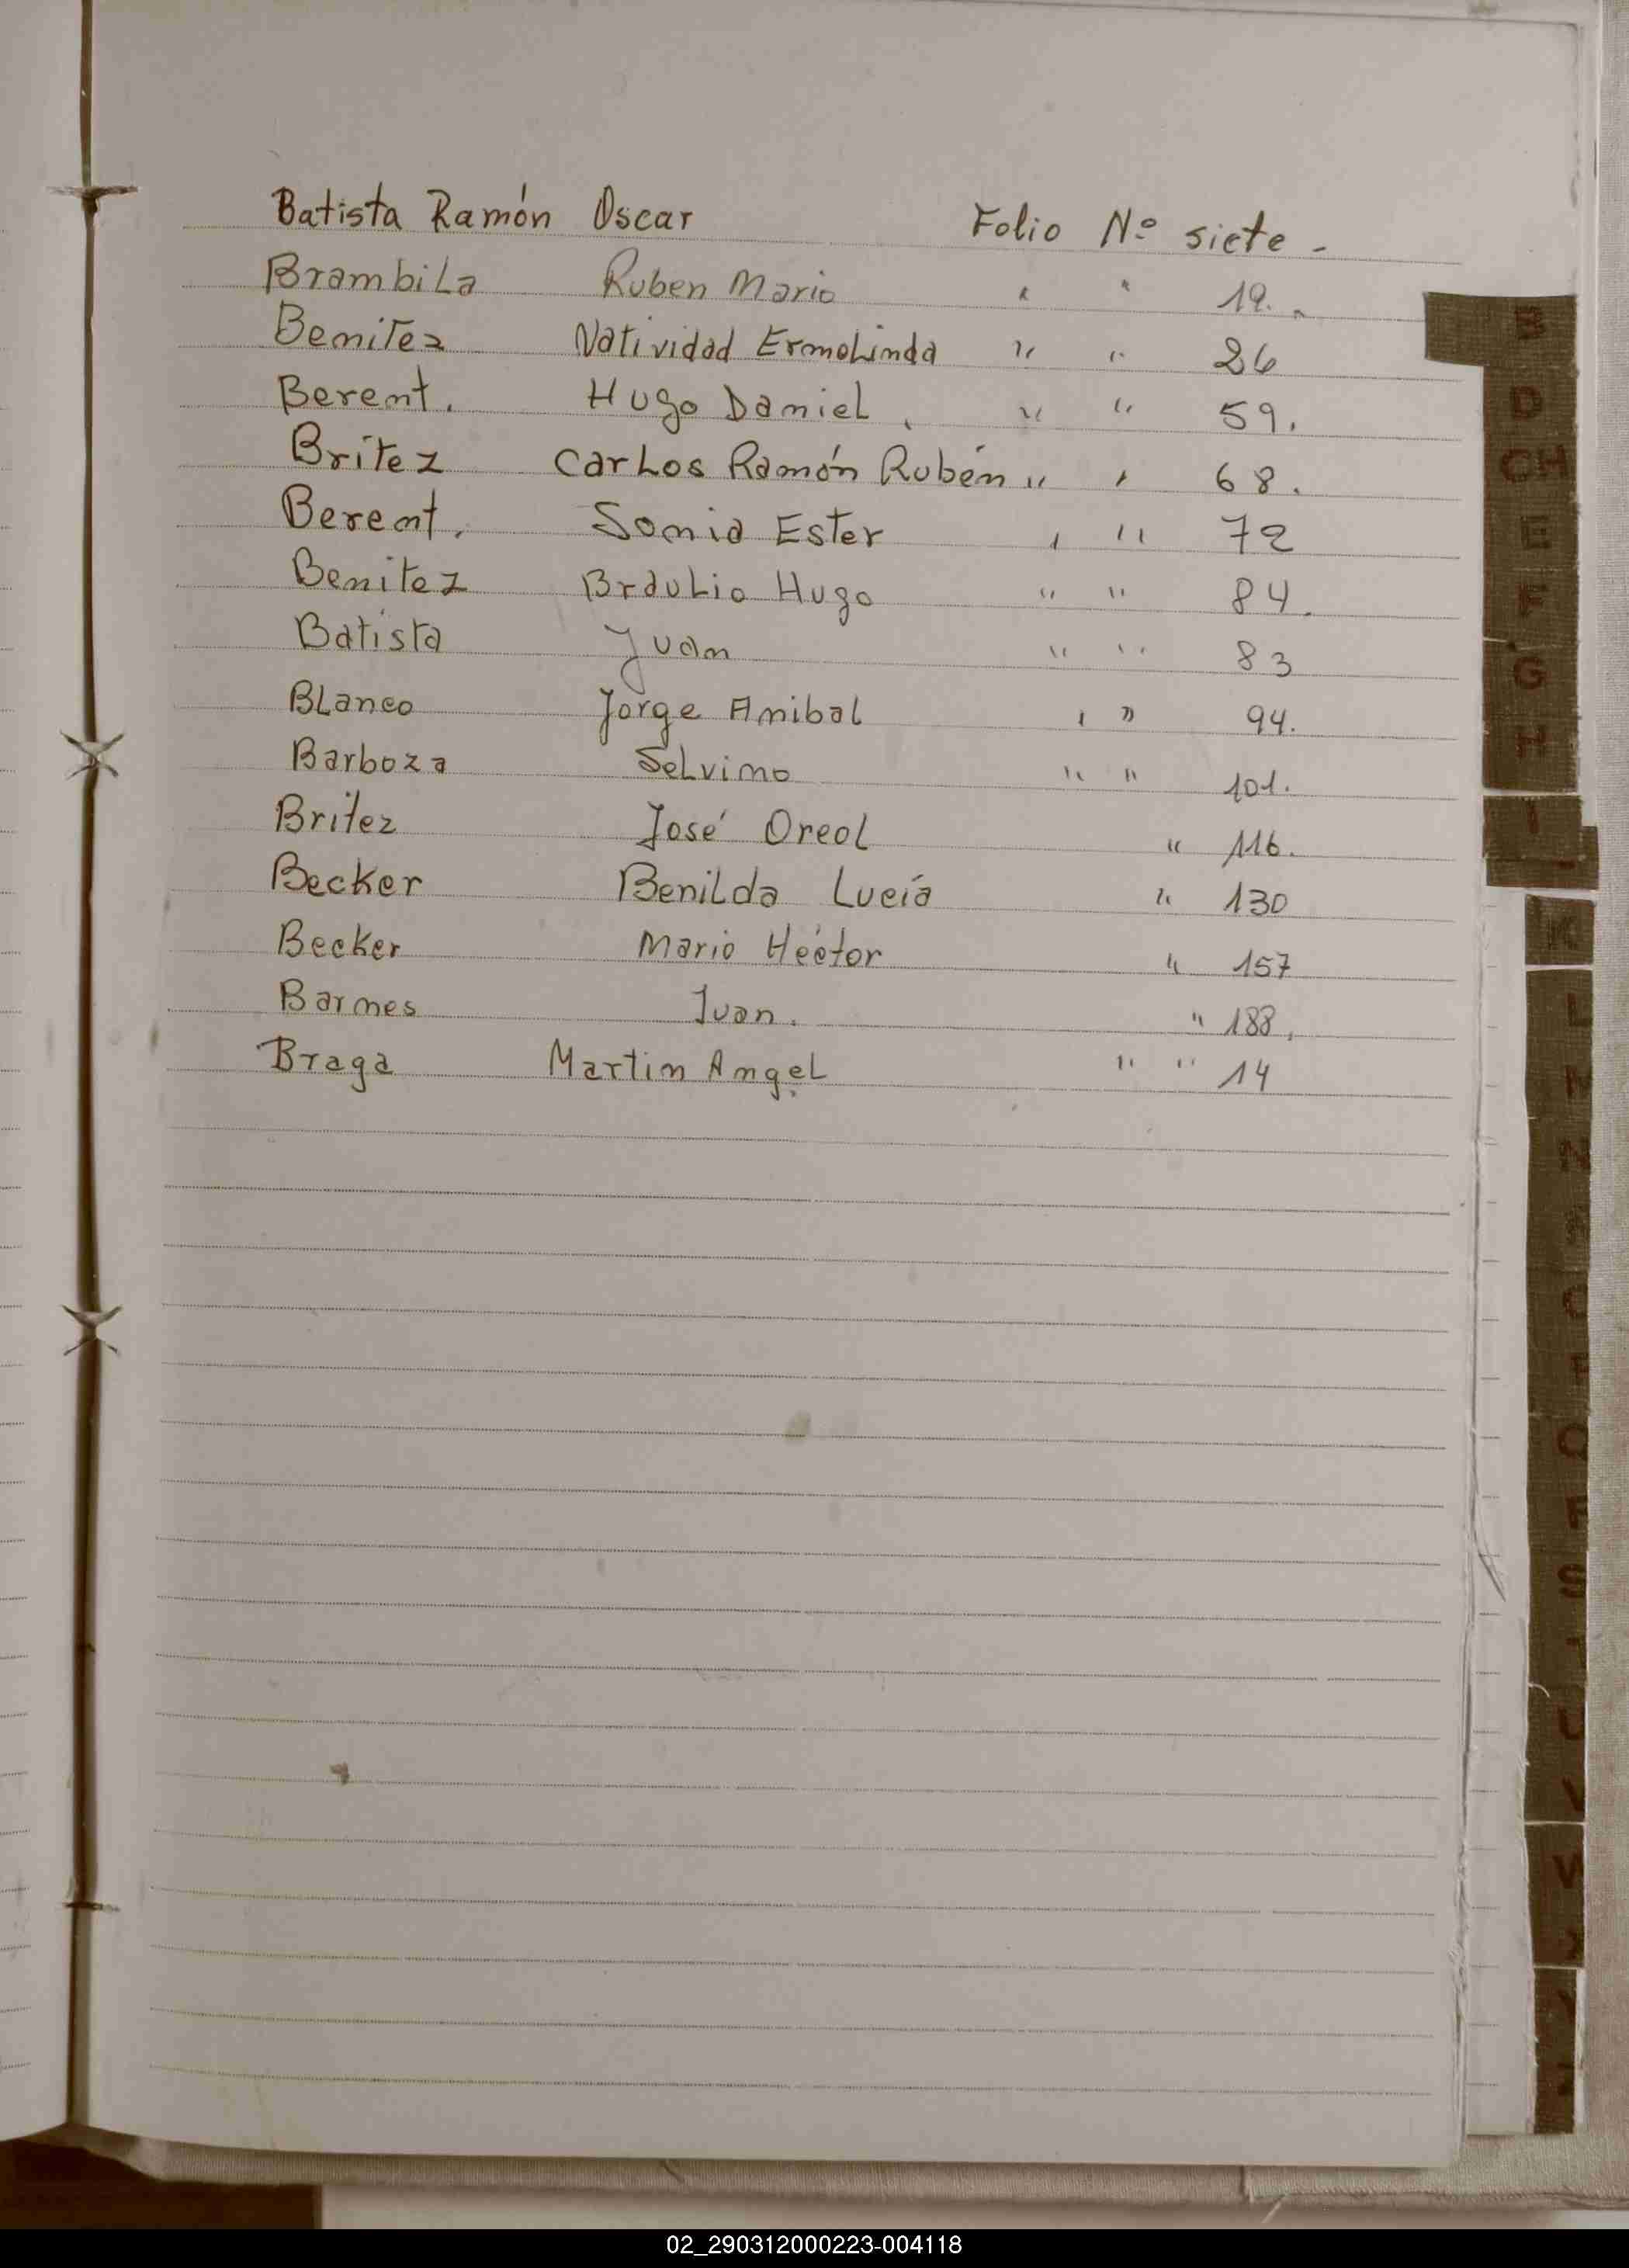 Batista Ramón Oscar Folio Nº siete -
Brambila Ruben Mario " " 19.
Benitez Natividad Ermolinda " " 26
Berent. Hugo Daniel. " " 59.
Britez Carlos Ramón Rubén " " 68.
Berent. Sonia Ester " " 72
Benitez Braulio Hugo " " 84.
Batista Juan " " 83
Blanco Jorge Anibal " " 94.
Barboza Selvino " " 101.
Britez José Oreol " 116.
Becker Benilda Lucía " 130
Becker Mario Héctor " 157
Barnes Ivan. " 188.
Braga Martin Angel " " 14
B
D
CH
E
F
G
H
I
K
L
M
N
O
P
Q
R
S
U
V
W
02_290312000223-004118